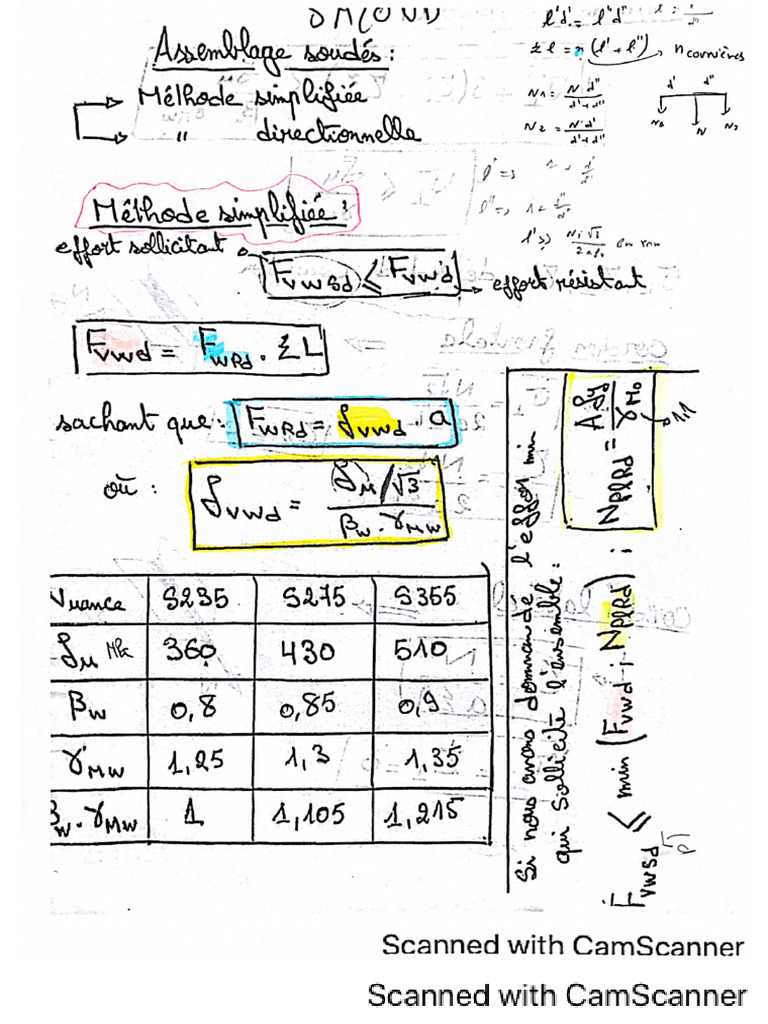 Assemblage soudés :
→ Méthode simplifiée
→ " directionnelle
l'd' = l"d"
Σl = n (l' + l") → n cornières
N1 = N.d" / d'+d"
N2 = N.d' / d'+d"
d' d"
N N2
Méthode simplifiée :
effort sollicitant
FvwSd ≤ Fvwd → effort résistant
Fvwd = FwRd . ΣL
sachant que : FwRd = fvwd . a
où : fvwd = fu/√3 / βw.γMw
Nuance S235 S275 S355
fu MPa 360 430 510
βw 0,8 0,85 0,9
γMw 1,25 1,3 1,35
βw.γMw 1 1,105 1,215
Si nous avons demandé l'effort min
qui sollicite l'ensemble :
FvwSd ≤ min (Fvwd ; NplRd) ; NplRd = A fy / γM0 → 1.1
Scanned with CamScanner
Scanned with CamScanner